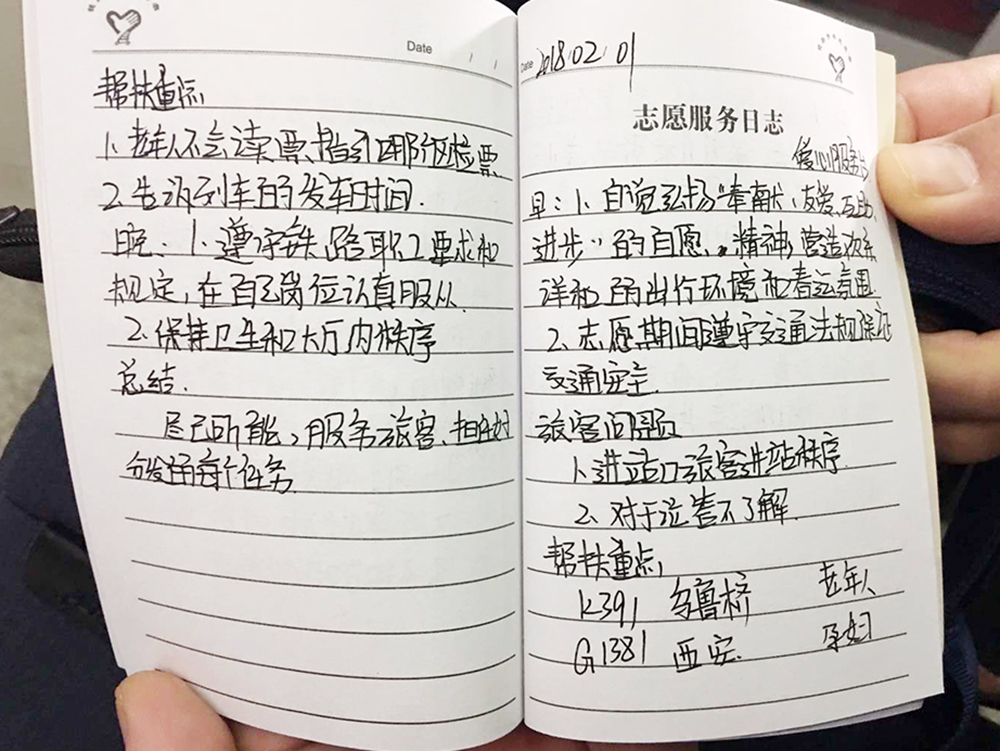 Date
帮扶重点
1.老年人不会读票指引区哪个区检票
2.告诉列车的发车时间.
晚：1.遵守铁路职工要求和
规定,在自己岗位认真服从.
2.保持卫生和大厅内秩序
总结.
尽己所能,服务旅客,担任好
分发的每个任务.
Date 2018.02.01
志愿服务日志
服务台
早：1.自觉弘扬“奉献、友爱、互助、
进步”的自愿精神,营造欢乐
详和的出行环境和春运氛围.
2.志愿期间遵守交通法规保证
交通安全.
旅客问题
1.进站口旅客进站秩序.
2.对于公告不了解.
帮扶重点
K391 乌鲁桥 老年人
G1381 西安. 孕妇